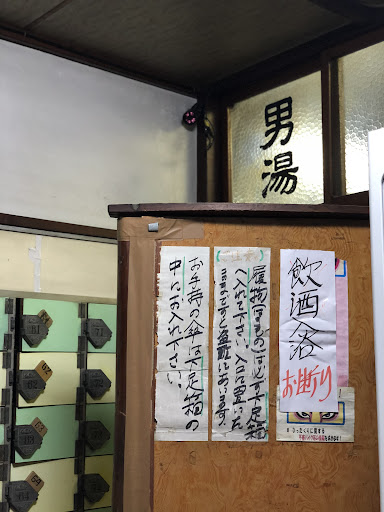 男湯
飲酒浴
お断り
履物(はきもの)は必ず下足箱
へ入れて下さい。入口に置いた
ままですと盗難にあいます。
お手持の傘は下足箱の
中にお入れ下さい。
ひったくりに関する